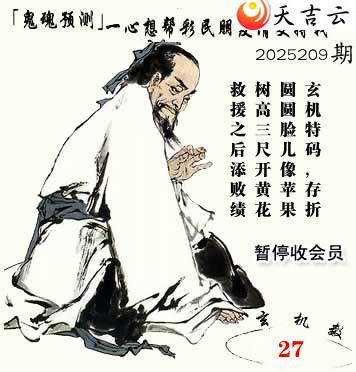 天吉云
「鬼魂预测」一心想帮彩民朋
2025209 期
玄机特码，存折
圆圆脸儿像苹果
树高三尺开黄花
救援之后添败绩
暂停收会员
玄机
27